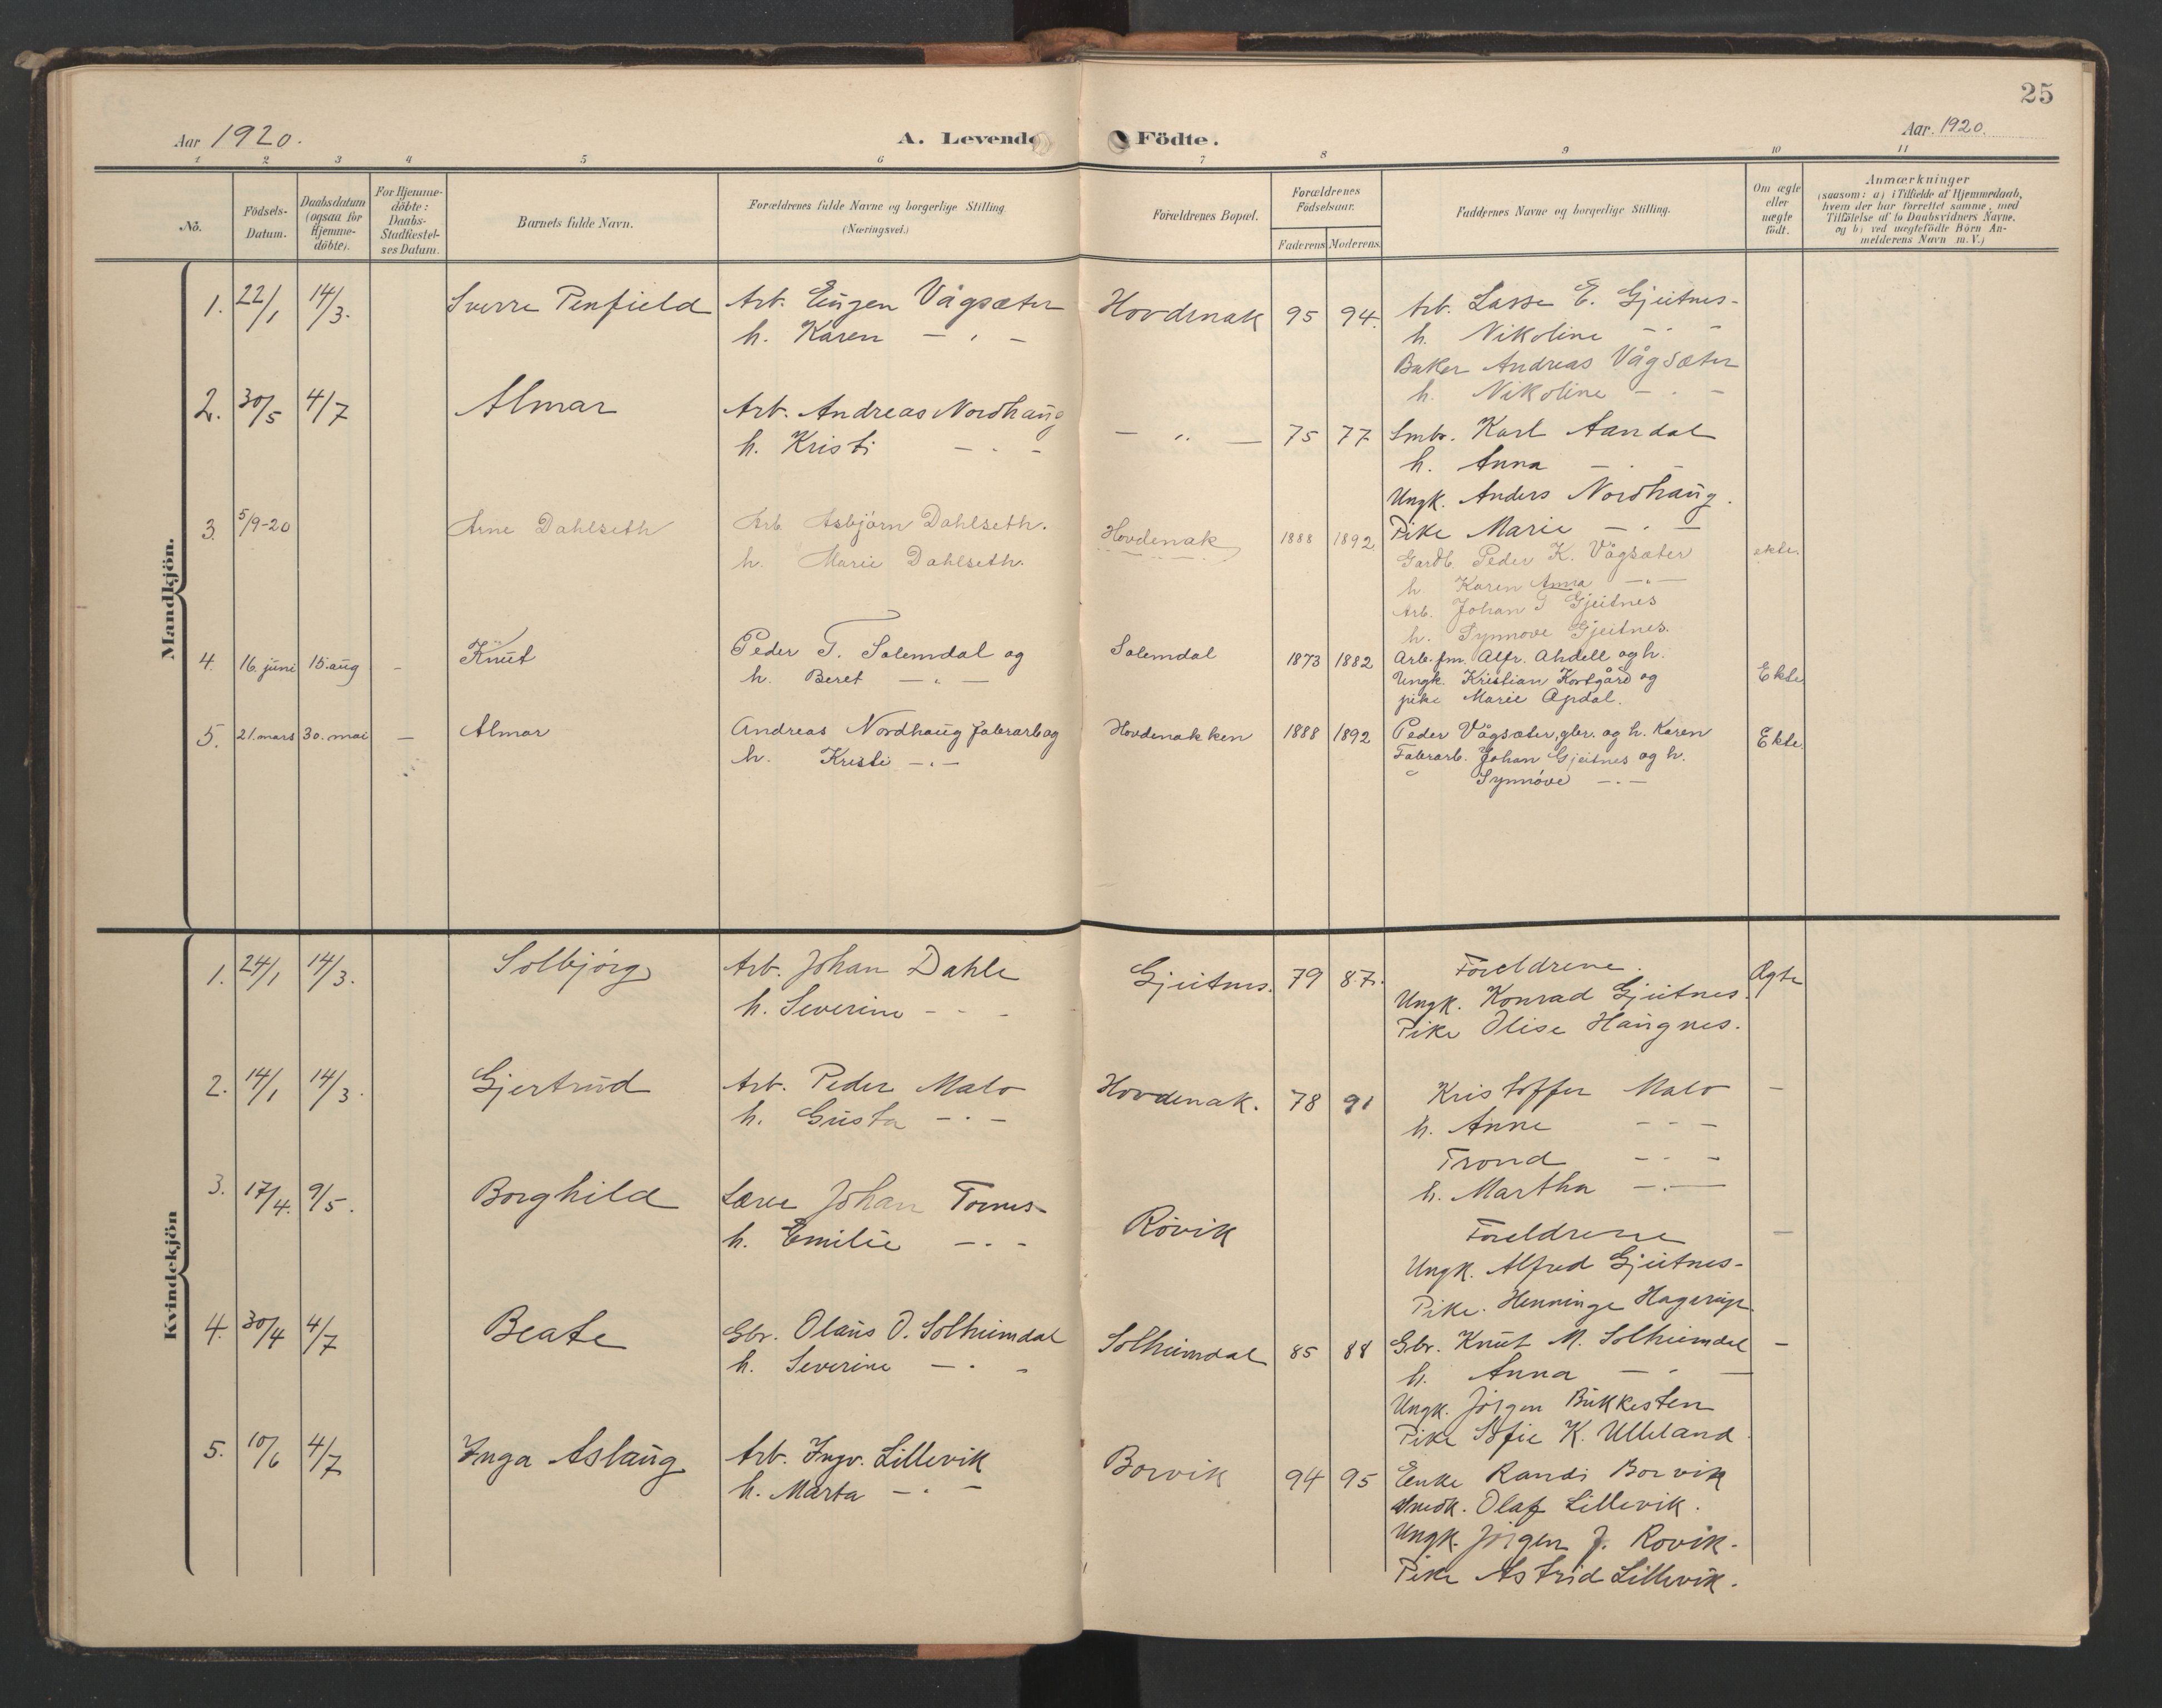 25
Aar 1920.
A. Levende Födte.
Aar. 1920.
1 2 3 4 5 6 7 8 9 10 11
No.
Födsels-Datum.
Daabsdatum (ogsaa for Hjemme-döbte).
For Hjemme-döbte: Daabs-Stadfæstel-ses Datum.
Barnets fulde Navn.
Forældrenes fulde Navne og borgerlige Stilling (Næringsvei.)
Forældrenes Bopæl.
Forældrenes Födselsaar.
Faderens Moderens.
Faddernes Navne og borgerlige Stilling.
Om ægte eller uægte födt.
Anmærkninger
(saasom: a) i Tilfælde af Hjemmedaab,
hvem der har forrettet samme, med
Tilföielse af to Daabsvidners Navne.
og b) ved uægtefödte Börn An-
melderens Navn m. V.)
Mandkjön.
1. 22/1 14/3. Sverre Penfield Arb. Eugen Vågsæter Hovdenak 95 94. Arb. Lasse E. Gjeitnes-
h. Karen — " — h. Nikoline - " -
Baker Andreas Vågsæter
h. Nikoline — " —
2. 30/5 4/7 Almar Arb. Andreas Nordhaug — " — 75 77 Smbr. Karl Aandal
h. Kristi — " — h. Anna — . —
Ungk. Anders Nordhaug.
Pike Marie — " —
3. 5/9-20 Arne Dahlseth Arb. Asbjørn Dahlseth. Hovdenak 1888 1892 Gardb. Peder K. Vågsæter ekte.
h. Marie Dahlseth. h. Karen Anna — " —
Arb. Johan T Gjeitnes
h. Synnøve Gjeitnes.
4. 16. juni 15. aug - Knut Peder T. Solemdal og Solemdal 1873 1882 Arb. fm. Alfr. Ahdell og h. Ekte
h. Beret — " — Ungk. Kristian Kortgård og
pike Marie Opdal.
5. 21. mars 30. mai — Almar Andreas Nordhaug fabrarb og Hovdenakken 1888 1892 Peder Vågsæter, gbr. og h. Karen Ekte.
h. Kristi — " — Fabrarb. Johan Gjeitnes og h.
Synnøve — " —
Kvindekjön
1. 24/1 14/3. Solbjørg Arb. Johan Dahle Gjeitnes. 79 87. Foreldrene. Ægte
h. Severine - - - Ungk. Konrad Gjeitnes.
Pike Olise Haugnes.
2. 14/1 14/3. Gjertrud Arb. Peder Malo Hovdenak. 78 91 Kristoffer Malo —
h. Gusta — " — h. Anne - - -
Trond - - -
h. Martha — . —
3. 17/4. 9/5. Borghild Lærer Johan Tornes- Røvik Foreldrene —
h. Emilie — " - Ungk. Alfred Gjeitnes-
Pike. Henninge Hagerup.
4. 30/4 4/7 Beate Gbr. Olaus O. Solheimdal Solheimdal 85 88 Gbr. Knut M. Solheimdal —
h. Severine — " - h. Anna — " —
Ungk. Jørgen Bukkesten
Pike Sofie K. Ulleland
5. 10/6 4/7 Inga Aslaug Arb. Ingv. Lillevik Borvik 94 95 Enke Randi Borvik
h. Marta — " — Snedk. Olaf Lillevik.
Ungk. Jørgen J. Rovik.
Pike Astrid Lillevik.